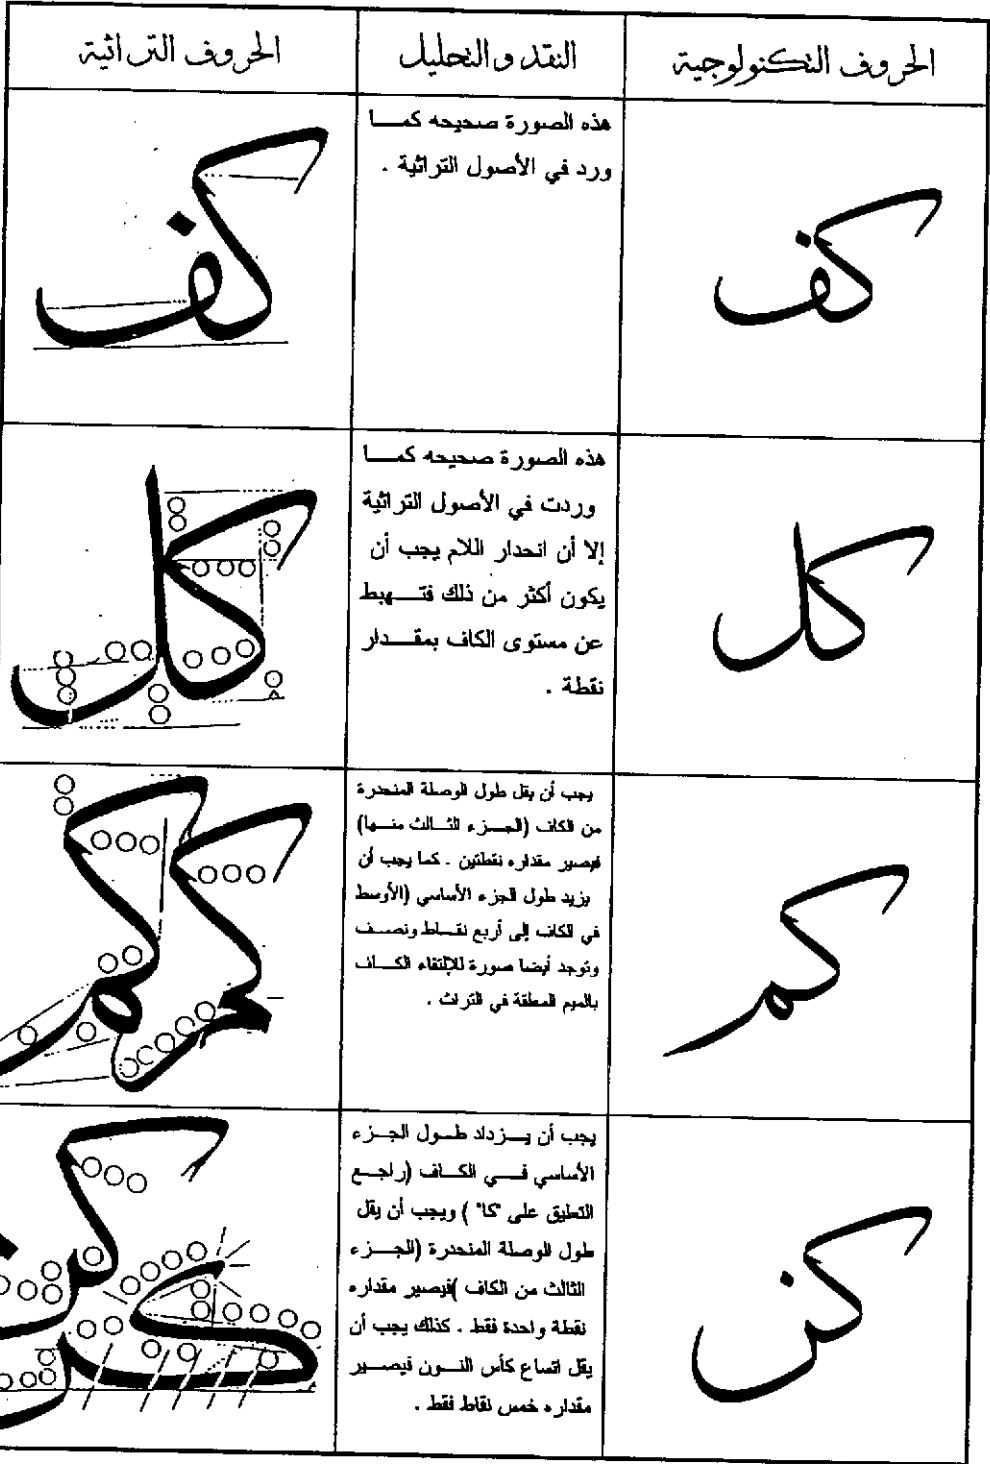 الحروف التكنولوجية
النقد والتحليل
الحروف التراثية
كف
هذه الصورة صحيحه كمـــا
ورد في الأصول التراثية .
كف
كل
هذه الصورة صحيحه كمـــا
وردت في الأصول التراثية
إلا أن انحدار اللام يجب أن
يكون أكثر من ذلك فتـــهبط
عن مستوى الكاف بمقـــدار
نقطة .
كل
كم
يجب أن يقل طول الوصلة المنحدرة
من الكاف (الجـــزء الثـــالث منـــها)
فيصير مقداره نقطتين . كما يجب أن
يزيد طول الجزء الأساسي (الأوسط
في الكاف إلى أربع نقـــاط ونصـــف
وتوجد أيضا صورة للإلتقاء الكـــاف
بالميم المعلقة في التراث .
كم
كم
كن
يجب أن يـــزداد طـــول الجـــزء
الأساسي فـــي الكـــاف (راجـــع
التعليق على "كا" ) ويجب أن يقل
طول الوصلة المنحدرة (الجـــزء
الثالث من الكاف )فيصير مقداره
نقطة واحدة فقط . كذلك يجب أن
يقل اتساع كأس النـــون فيصـــير
مقداره خمس نقاط فقط .
كن